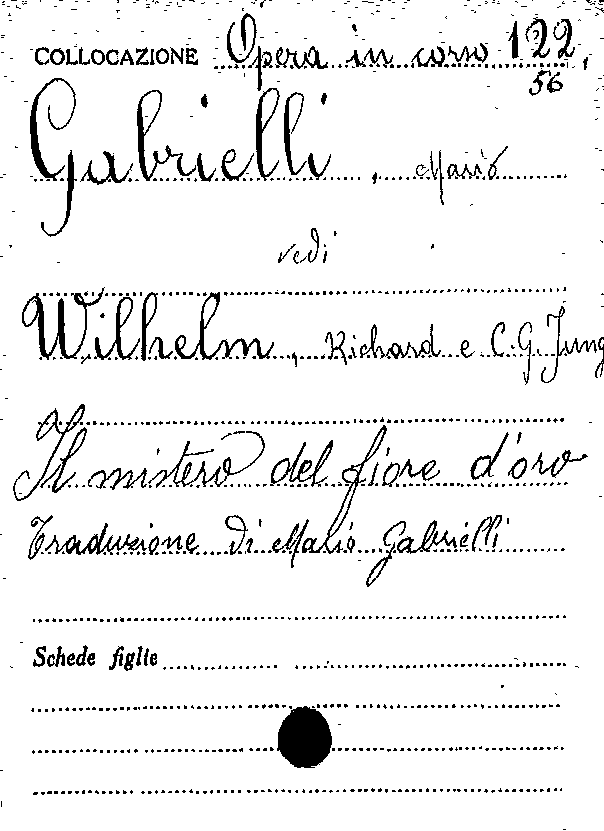 COLLOCAZIONE Opera in corso 122,
56
Gabrielli, Mario
vedi
Wilhelm, Richard e C.G. Jung
Il mistero del fiore d'oro
Traduzione di Mario Gabrielli
Schede figlie